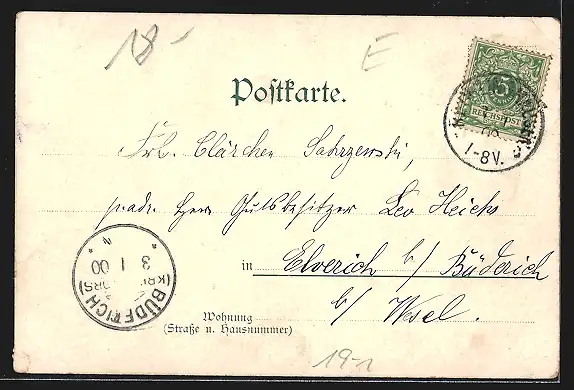 18-
E
Postkarte.
5
REICHSPOST
1-8V.
Frl. Clärchen Sakrzewski,
p. adr. Herrn Gutsbesitzer Leo Heicks
in Elverich b/ Büderich
b/ Wesel.
Wohnung
(Straße u. Hausnummer)
* N *
3 1 00
(KR. MÖRS)
BÜDERICH
19-1